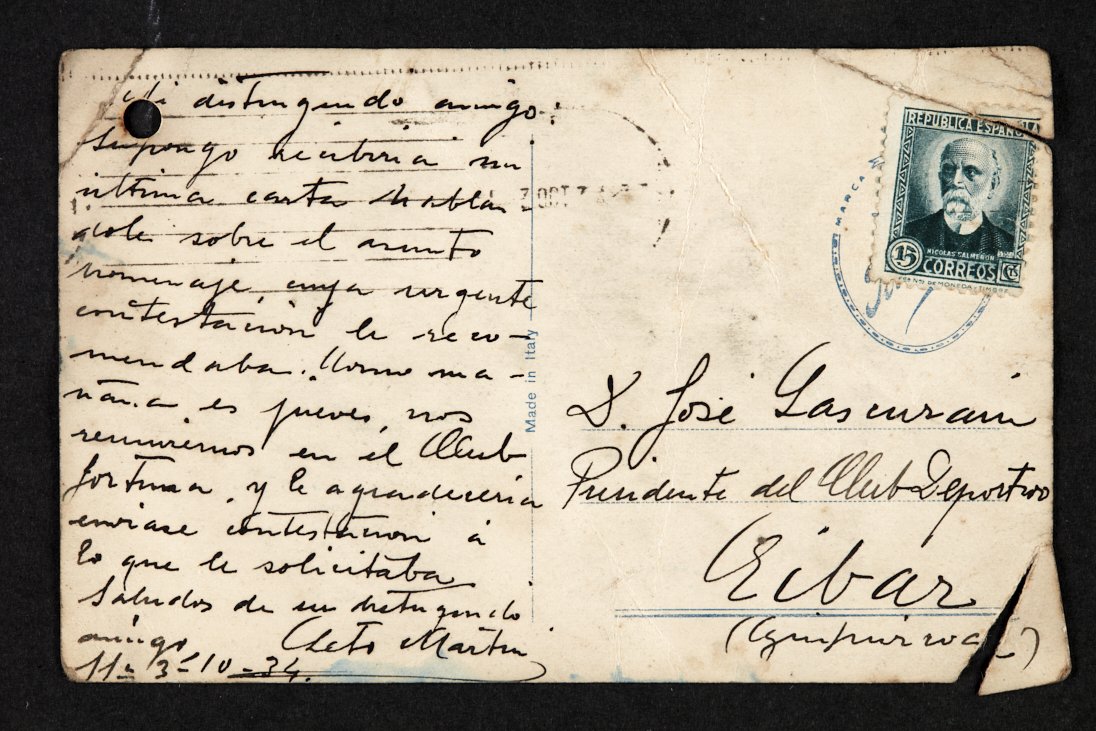 Mi distinguido amigo:
Supongo recibiria mi
ultima carta hablan-
dole sobre el asunto
homenaje, cuya urgente
contestacion le reco-
mendaba. Como ma-
ñana es jueves, nos
reunimos en el Club
Fortuna, y le agradeceria
enviase contestacion á
lo que le solicitaba
Saludos de su distinguido
amigo Cleto Martin
3-10-34.
Made in Italy
3 OCT
MARCA
REPUBLICA ESPAÑOLA
NICOLAS SALMERON
15 CORREOS Cts
D. José Lascurain
Presidente del Club Deportivo
Eibar
(Guipuzcoa)